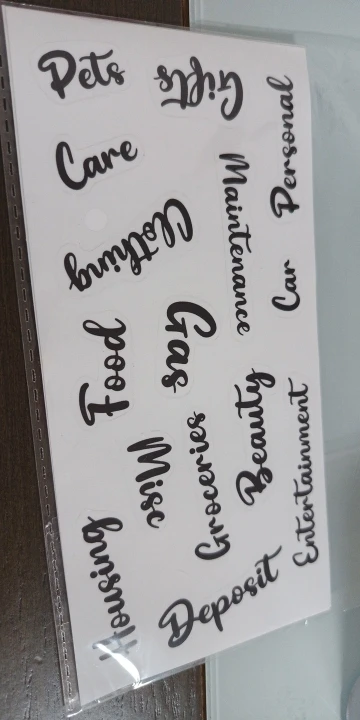 Pets
Gifts
Personal
Care
Maintenance
Clothing
Car
Gas
Food
Beauty
Misc
Groceries
Entertainment
Housing
Deposit